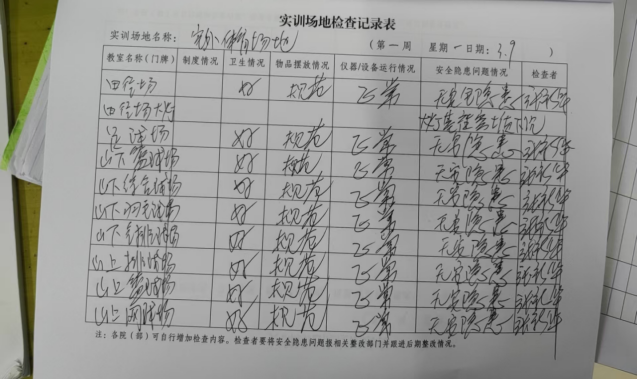 实训场地检查记录表
实训场地名称：室外体育场地 （第一周 星期一日期：3.9 ）
教室名称（门牌） 制度情况 卫生情况 物品摆放情况 仪器/设备运行情况 安全隐患问题情况 检查者
田径场 好 规范 正常 无安全隐患
田径场大灯
足球场 好 规范 正常 无安全隐患
山下篮球场 好 规范 正常 无安全隐患
山下综合球场 好 规范 正常 无安全隐患
山下网球场 好 规范 正常 无安全隐患
山下气排球场 好 规范 正常 无安全隐患
山上排球场 好 规范 正常 无安全隐患
山上篮球场 好 规范 正常 无安全隐患
山上网球场 好 规范 正常 无安全隐患
注：各院（部）可自行增加检查内容。检查者要将安全隐患问题报相关整改部门并跟进后期整改情况。